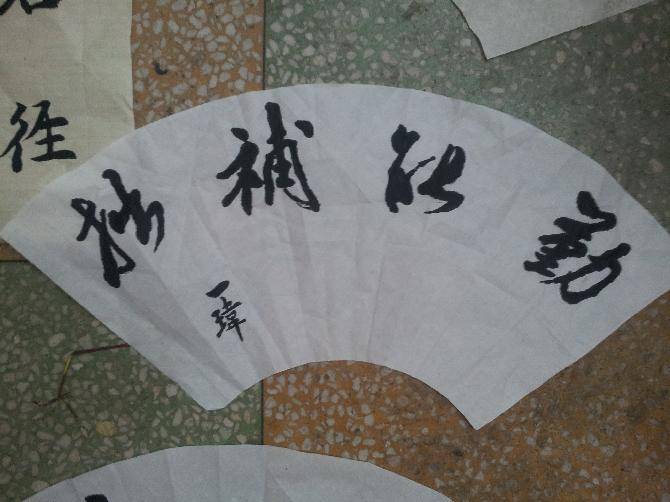 勤能補拙
一瑋
径